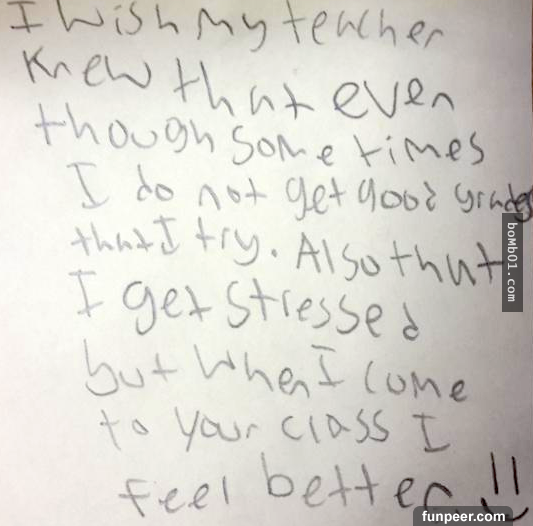 I wish my teacher
knew that even
though some times
I do not get good grades
that I try. Also that
I get stressed
but when I come
to your class I
feel better. !!
boMb01.com
funpeer.com